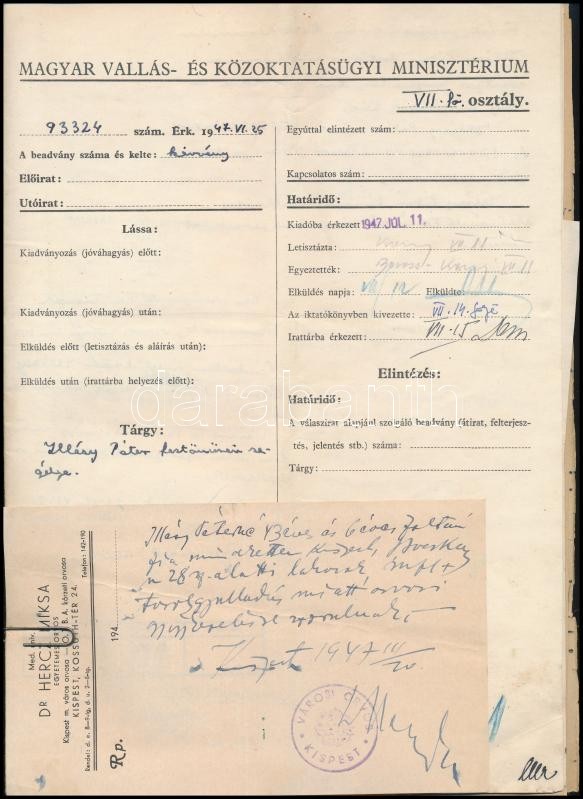 MAGYAR VALLÁS- ÉS KÖZOKTATÁSÜGYI MINISZTÉRIUM
VII. fő. osztály.
93324 szám. Érk. 1947.VI.25
A beadvány száma és kelte: kérvény
Előirat:
Utóirat:
Lássa:
Kiadványozás (jóváhagyás) előtt:
Kiadványozás (jóváhagyás) után:
Elküldés előtt (letisztázás és aláírás után):
Elküldés után (irattárba helyezés előtt):
Tárgy:
Illésy Péter festőművész se-
gélye.
Egyúttal elintézett szám:
Kapcsolatos szám:
Határidő:
Kiadóba érkezett 1947 JÚL. 11.
Letisztázta: VII. 11
Egyeztették: VII 11
Elküldés napja: VII/12 Elküldte:
Az iktatókönyvben kivezette: VII. 14.
Irattárba érkezett: VII. 15
Elintézés:
Határidő:
A válaszirat alapjául szolgáló beadvány (átirat, felterjesz-
tés, jelentés stb.) száma:
Tárgy:
darabanth
Med. univ.
DR HERCZ MIKSA
EGYETEMES ORVOS
Kispest m. város orvosa O. T. B. A. körzeti orvosa
KISPEST, KOSSUTH-TÉR 24.
Rendel: d. e. 8—9-ig, d. u. 2—5-ig. Telefon: 142-190
194
Rp.
Zoltán
fia mindketten Kispest,
28 sz. alatti lakosok
miatt orvosi
Kispest 1947
VÁROSI ORVOS
KISPEST